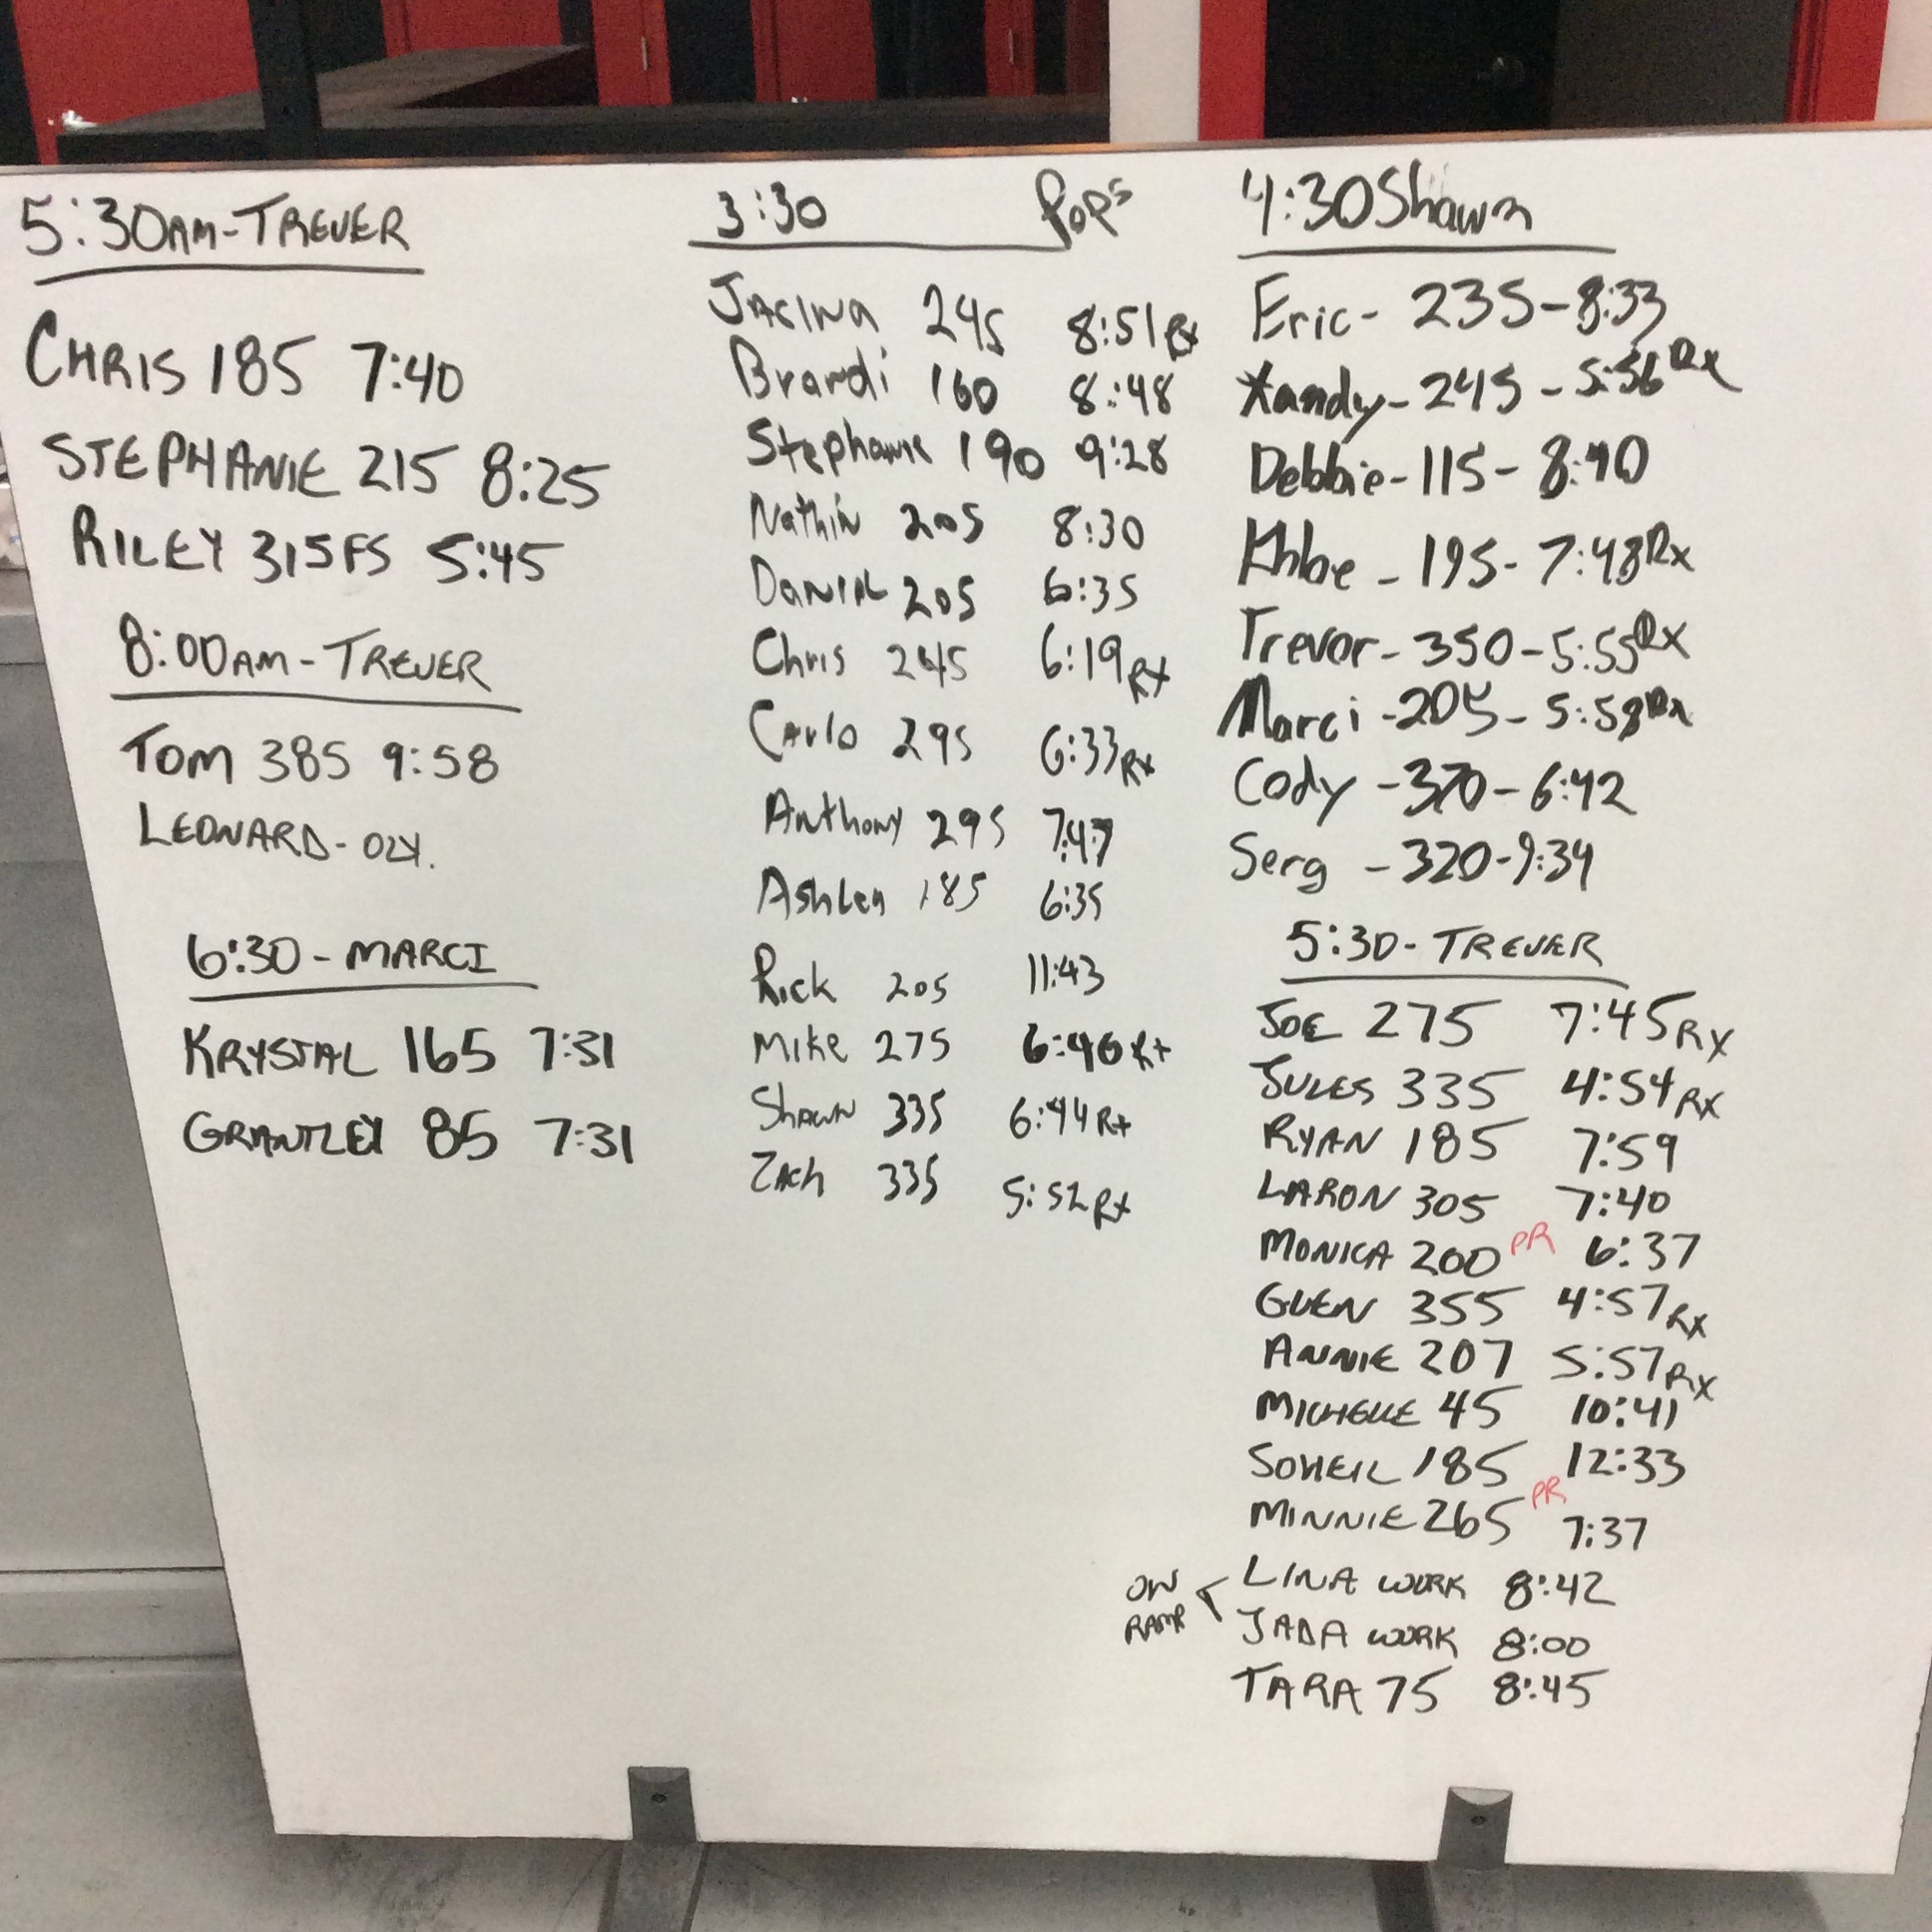 5:30AM-TREVER
CHRIS 185 7:40
STEPHANIE 215 8:25
RILEY 315FS 5:45
8:00AM-TREVER
TOM 385 9:58
LEONARD-OLY.
6:30-MARCI
KRYSTAL 165 7:31
GRANTLEY 85 7:31
3:30 Pops
Jacina 245 8:51 Rx
Brandi 160 8:48
Stephanie 190 9:28
Nathin 205 8:30
Daniel 205 6:35
Chris 245 6:19 Rx
Carlo 295 6:33 Rx
Anthony 295 7:47
Ashley 185 6:35
Rick 205 11:43
Mike 275 6:46 Rx
Shawn 335 6:44 Rx
Zach 335 5:52 Rx
4:30 Shawn
Eric- 235-8:33
Xandy-245-5:56 Rx
Debbie-115-8:40
Khloe-195-7:48 Rx
Trevor-350-5:55 Rx
Marci-205-5:58 Rx
Cody-370-6:42
Serg-320-9:34
5:30-TREVER
JOE 275 7:45 RX
JULES 335 4:54 RX
RYAN 185 7:59
LARON 305 7:40
MONICA 200 PR 6:37
GUEN 355 4:57 RX
ANNIE 207 5:57 RX
MICHELLE 45 10:41
SOHEIL 185 12:33
MINNIE 265 PR 7:37
ON RAMP
LINA WORK 8:42
JADA WORK 8:00
TARA 75 8:45